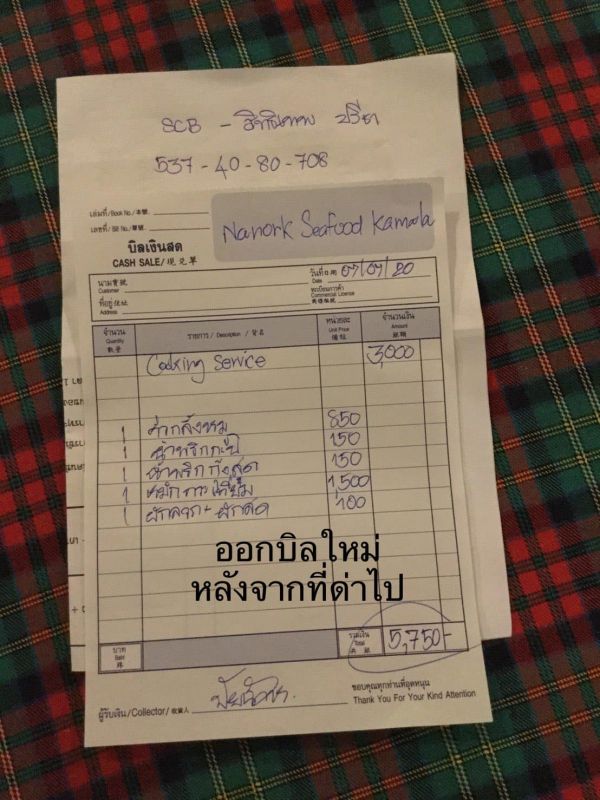 SCB -
537-40-80-708
เล่มที่/Book No./本號
เลขที่/Bill No./單號
Nanork Seafood Kamala
บิลเงินสด
CASH SALE/現兌單
นาม寶號
Customer
วันที่日期 07/07/20
Date
ที่อยู่住址
Address
ทะเบียนการค้า
Commercial License
จำนวน รายการ / Description / 貨名 หน่วยละ จำนวนเงิน
Quantity Unit Price Amount
數量
Cooking Service 3,000
1 850
1 น้ำพริกกะปิ 150
1 น้ำพริกกุ้งสด 150
1 1,500
1 ผักลวก + ผักสด 100
ออกบิลใหม่
หลังจากที่ด่าไป
บาท
Baht
รวมเงิน
Total
5,750-
ผู้รับเงิน/Collector/收貨人
ขอบคุณทุกท่านที่อุดหนุน
Thank You For Your Kind Attention